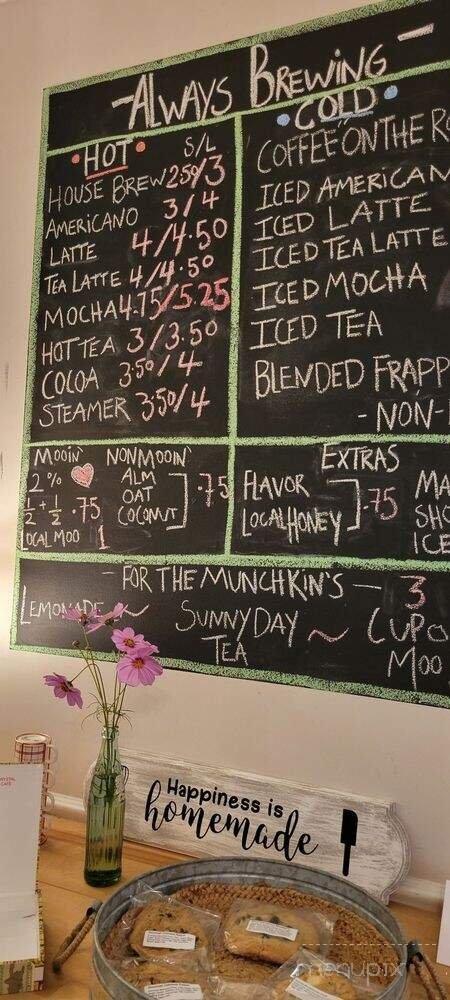 -ALWAYS BREWING-
HOT
S/L
HOUSE BREW 2.50/3
AMERICANO 3/4
LATTE 4/4.50
TEA LATTE 4/4.50
MOCHA 4.75/5.25
HOT TEA 3/3.50
COCOA 3.50/4
STEAMER 3.50/4
COLD
COFFEE "ON THE RO
ICED AMERICAN
ICED LATTE
ICED TEA LATTE
ICED MOCHA
ICED TEA
BLENDED FRAPP
-NON-
MOOIN'
2%
½ + ½ .75
LOCAL MOO 1
NONMOOIN'
ALM
OAT
COCONUT
.75
EXTRAS
FLAVOR
LOCAL HONEY
.75
MA
SHO
ICE
- FOR THE MUNCHKIN'S - 3
LEMONADE ~ SUNNY DAY TEA ~ CUP O
MOO
Happiness is
homemade
menupix